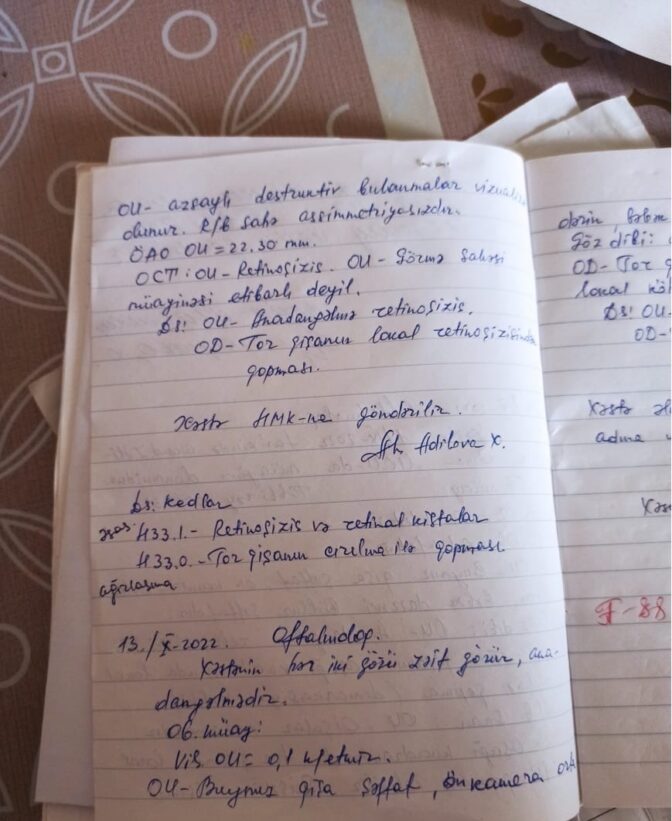 OU- azsaylı destruktiv bulanmalar vizualizə
olunur. R/B sahə assimmetriyasızdır.
ÖAO OU = 22.30 mm.
OCT: OU- Retinoşizis. OU- Görmə sahəsi
müayinəsi etibarlı deyil.
Ds: OU- Anadangəlmə retinoşizis.
OD- Tor qişanın lokal retinoşizisində
qopması.
Xəstə HMK-nə göndərilir.
Adilova X.
Ds: Kedlər
əsas: H33.1.- Retinoşizis və retinal kistalar
H33.0.- Tor qişanın cırılma ilə qopması
ağırlaşma
13./X-2022. Oftalmoloq.
Xəstənin hər iki gözü zəif görür, ana-
dangəlmədir.
Ob. müay:
Vis. OU = 0,1
OU- Buynuz qişa şəffaf, ön kamera orta
dərin, bəbək
Göz dibi:
OD- Tor q
lokal
Ds: OU-
OD-
Xəstə
adına
Xəs
F-88